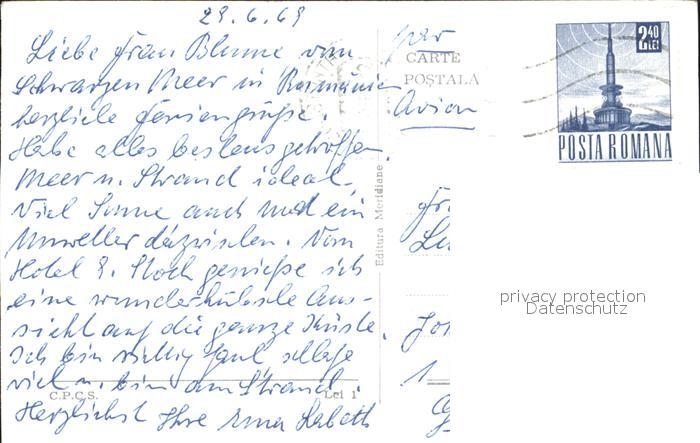 29.6.69
Liebe Frau Blume vom
Schwarzen Meer in Rumänien
herzliche Feriengrüße.
Habe alles bestens getroffen
Meer u. Strand ideal,
viel Sonne auch mal ein
Unwetter dazwischen. Vom
Hotel 8. Stock genieße ich
eine wunderhübsche Aus-
sicht auf die ganze Küste.
Ich bin richtig faul schlafe
viel u. bin am Strand.
Herzlichst Ihre Erna
per
Avion
CARTE
POȘTALĂ
2,40
LEI
POSTA ROMANA
Editura Meridiane
C.P.C.S.
Lei 1
privacy protection
Datenschutz